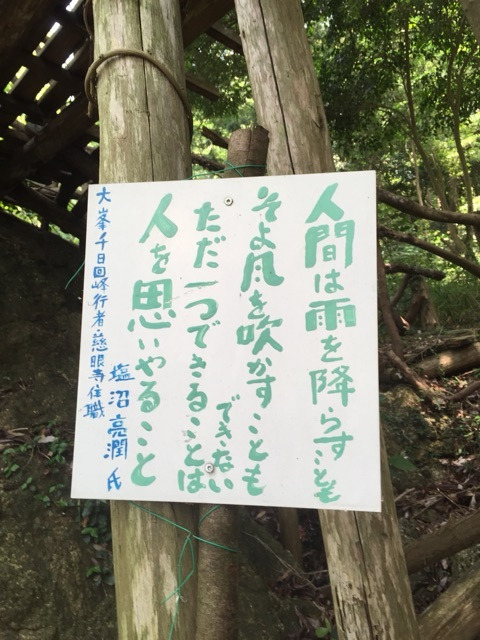 人間は雨を降らすことも
そよ風を吹かすことも
できない
ただ一つできることは
人を思いやること
大峯千日回峰行者・慈眼寺住職
塩沼亮潤氏